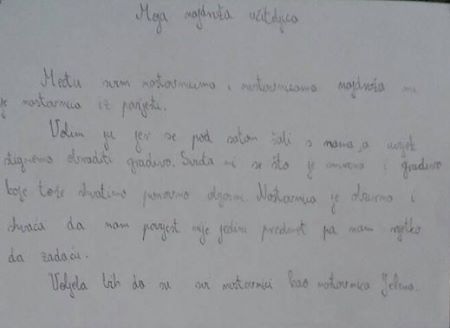 Moja najdraža učiteljica
Među svim nastavnicima i nastavnicama najdraža mi
je nastavnica iz povijesti.
Volim ju jer se pod satom šali s nama, a uvijek
stignemo obraditi gradivo. Sviđa mi se što je i gradivo
koje teže shvatimo ponovno objasni. Nastavnica je obzirna i
shvaća da nam povijest nije jedini predmet pa nam rijetko
da zadaću.
Voljela bih da su svi nastavnici kao nastavnica Jelena.